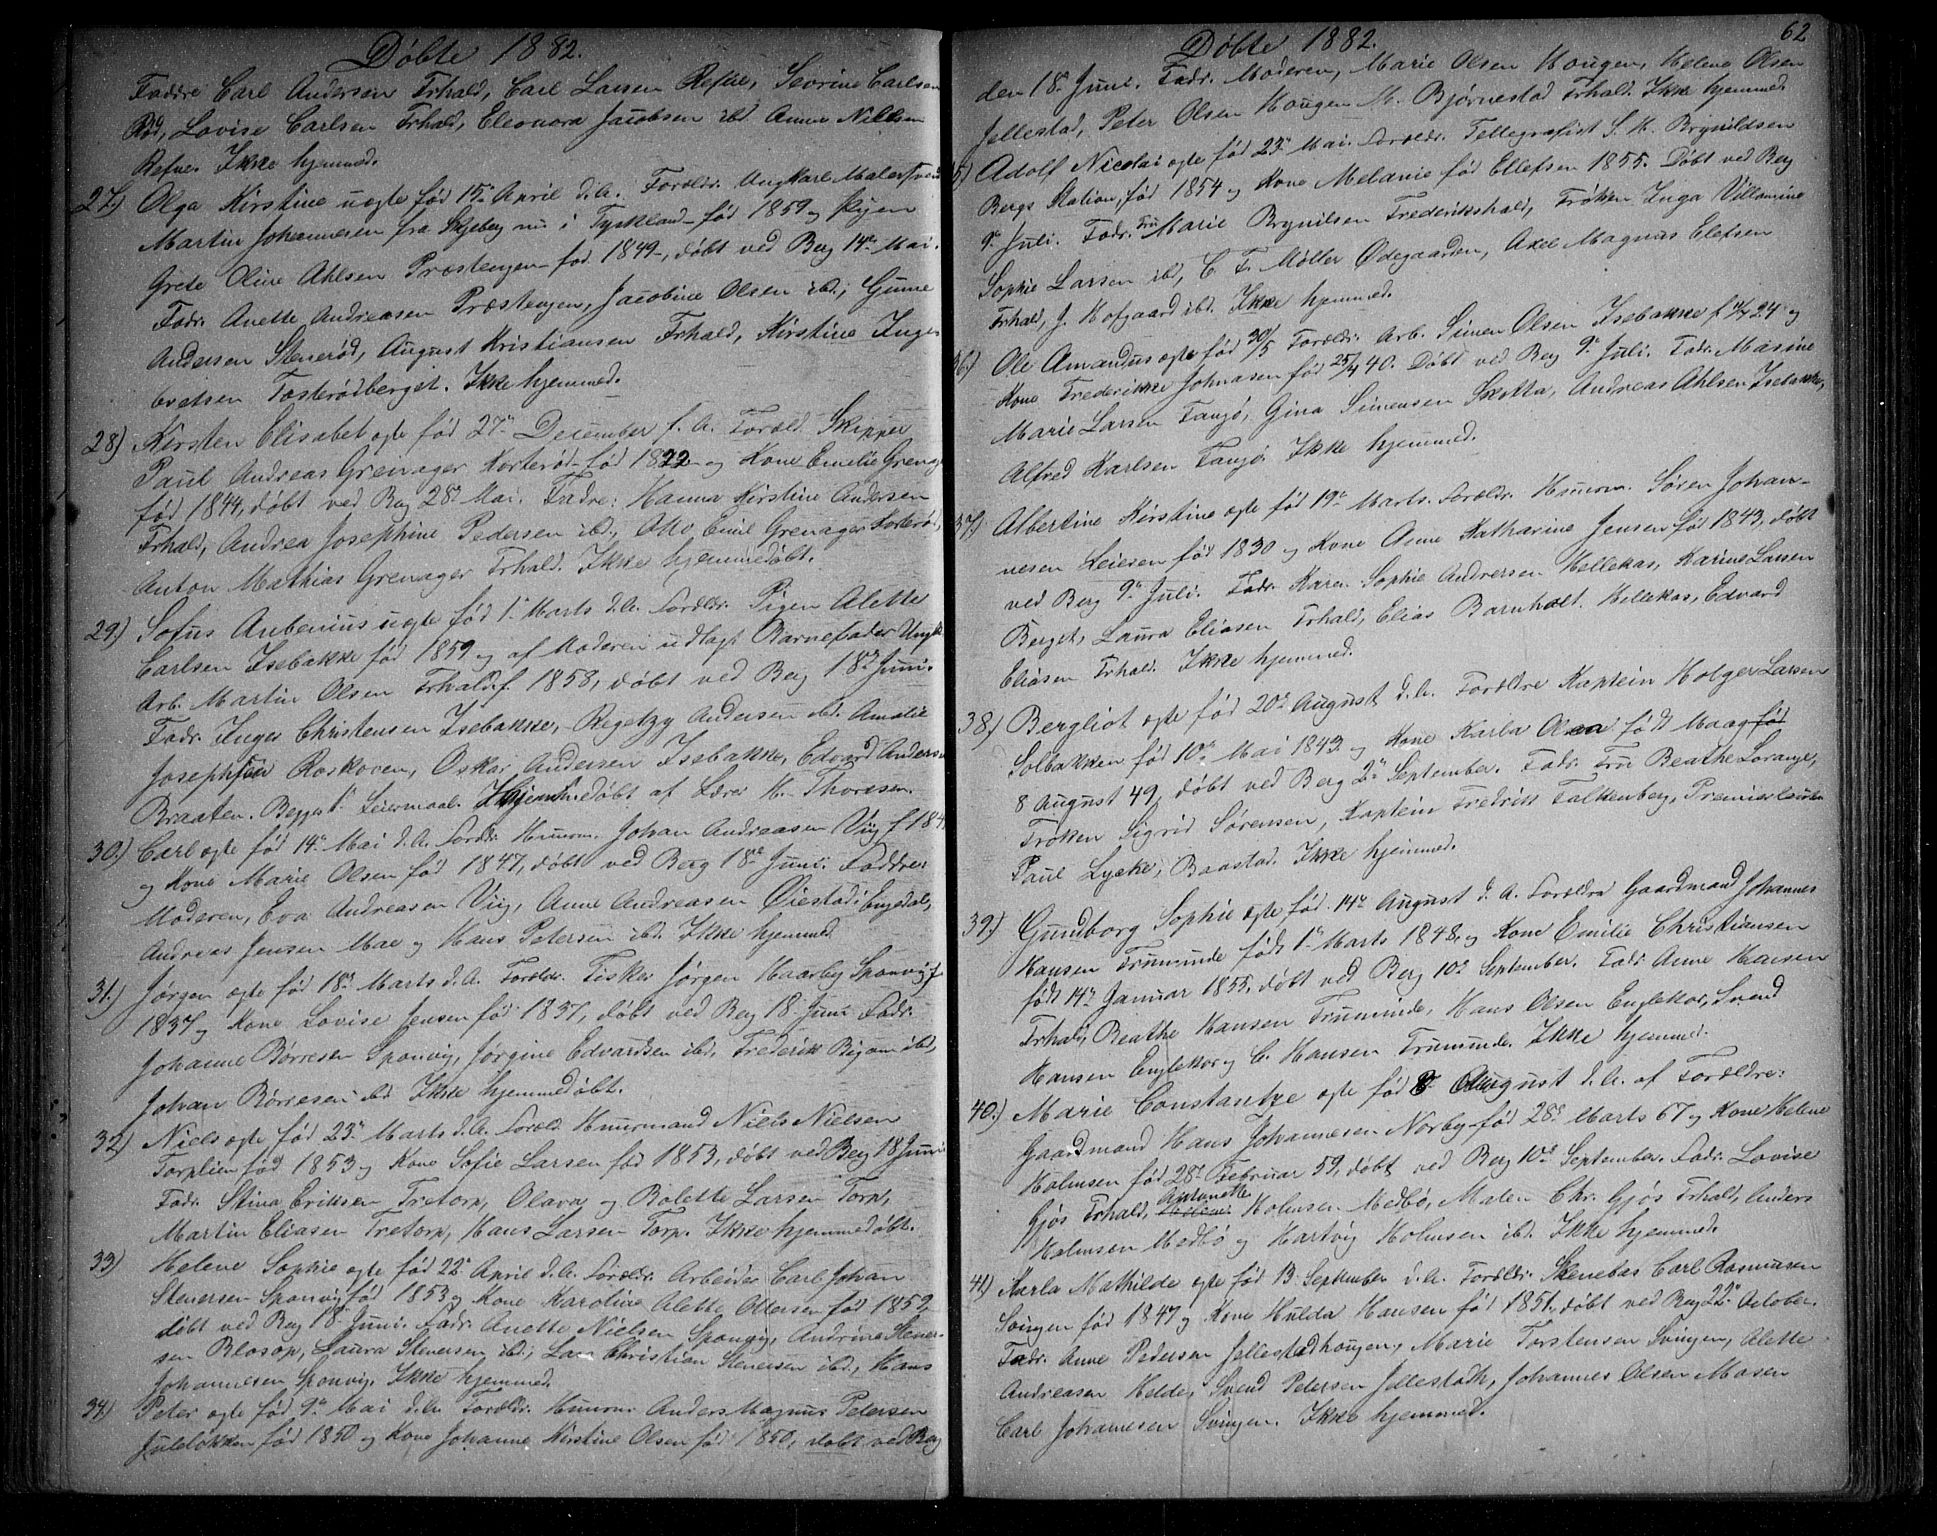 Døbte 1882.
Faddre Carl Andersen Frhald, Carl Larsen Refne, Severine Carlsen
Rød, Lovise Carlsen Frhald, Eleonora Jacobsen ibd Anne Nilsen
Refne. Ikke hjemmed.
27.) Olga Kirstine uegte født 15de April d.A. Foreldr. Ungkarl Malersvend
Martin Johannesen fra Skjeberg nu i Tyskland født 1859 og Pigen
Grete Oline Ahlsen Præstengen født 1849, døbt ved Berg 14de Mai.
Fadr. Anette Andreasen Præstengen, Jacobine Olsen ibd, Gunne
Andersen Stenerød, August Kristiansen Frhald, Kirstine Inge-
bretsen Tosterødberget. Ikke hjemmed.
28) Kirsten Elisabet egte født 27de December f.A. Foreld. Skipper
Paul Andreas Grenager Korterød født 1822 og Kone Emelie Grenager
født 1844, døbt ved Berg 28de Mai. Fadre: Hanna Kirstine Andersen
Frhald, Andrea Josephine Pedersen ibd, Otto Emil Grenager Korterød,
Anton Mathias Grenager Frhald. Ikke hjemmedøbt.
29.) Sofus Anbenius uegte født 1ste Marts d.A. Foreldr. Pigen Alette
Carlsen Isebakke født 1859 og af Moderen udlagt Barnefader Ungk.
Arb. Martin Olsen Frhald f. 1858, døbt ved Berg 18de Juni.
Fadr. Inger Christensen Isebakke, Regetzy Andersen ibd. Amalie
Josephsen Roskoven, Oskar Andersen Isebakke, Edvard Andersen
Braaten. Begges 1ste Leiermaal. Hjemmedøbt af Lærer H. Thoresen.
30.) Carl egte født 14de Mai d.A. Foreldr. Husm. Johan Andreasen Viig f. 184
og Kone Marie Olsen født 1847, døbt ved Berg 18de Juni. Faddre:
Moderen, Eva Andreasen Viig, Anne Andreasen Øiestad i Engedal,
Andreas Jensen Moe og Hans Petersen ibd. Ikke hjemmed.
31.) Jørgen egte født 18de Marts d.A. Foreldr. Fisker Jørgen Haarby Sponvig f.
1837 og Kone Lovise Jensen født 1837, døbt ved Berg 18. Juni Fadr.
Johanne Børresen Sponvig, Jørgine Edvardsen ibd, Frederik Bigom ibd,
Johan Børresen ibd Ikke hjemmedøbt.
32.) Niels egte født 23de Marts d.A. Foreld. Husmand Niels Nielsen
Torplien født 1853 og Kone Sofie Larsen født 1853, døbt ved Berg 18 Juni
Fadr. Stina Eriksen Tretorp, Olava og Bolette Larsen Torp,
Martin Eliasen Tretorp, Hans Larsen Torp. Ikke hjemmedøbt.
33.) Helene Sophie egte født 22de April d.A. Foreldr. Arbeider Carl Johan
Stenersen Sponvig født 1853 og Kone Karoline Alette Ottersen født 1859,
døbt ved Berg 18de Juni. Fadr. Anette Nielsen Sponvig, Andrine Stener-
sen Blosop, Laura Stenersen ibd, Lars Christian Stenersen ibd, Hans
Johannesen Sponvig. Ikke hjemmed.
34.) Peter egte født 9de Mai d.A. Foreldr. Husm. Anders Magnus Petersen
Juleløkken født 1850 og Kone Johanne Kirstine Olsen født 1850, døbt ved Berg
Døbte 1882. 62
den 18. Juni. Fadr. Moderen, Marie Olsen Hougen, Helene Olsen
Jellestad, Peter Olsen Hougen M. Bjørnestad Frhald. Ikke hjemmed.
35) Adolf Nicolai egte født 23de Mai. Foreldr. Tellegrafist S. H. Brynildsen
Bergs Station, født 1854 og Kone Melanie født Ellefsen 1855. Døbt ved Berg
9de Juli. Fadr. Fru Marie Brynilsen Frederikshald, Frøken Inga Villamine
Sophie Larsen ibd, C. F. Møller Ødegaarden, Axel Magnus Elefsen
Frhald, J. Hofgaard ibd. Ikke hjemmed.
36.) Ole Amandus egte født 30/5 Foreldr. Arb. Simen Olsen Isebakke f. 24 og
Kone Frederikke Johnasen født 25/4 40. Døbt ved Berg 9de Juli. Fadr. Masine
Marie Larsen Fangø, Gina Simensen Skotta, Andreas Ahlsen Isebakke,
Alfred Karlsen Fangø Ikke hjemmed.
37.) Albertine Kirstine egte født 19de Marts. Foreldr. Husm. Søren Johan-
nesen Leiesen født 1830 og Kone Anne Katharine Jensen født 1843, døbt
ved Berg 9de Juli. Fadr. Karen Sophie Andersen Hellekas, Karine Larsen
Berget, Laura Eliasen Frhald, Elias Barnholt. Hellekas, Edvard
Eliasen Frhald. Ikke hjemmed.
38.) Bergliot egte født 20de August d.A. Foreldre Kaptein Holger Larsen
Solbakken født 10de Mai 1843 og Kone Karla Olea født Maag født
8 August 49, døbt ved Berg 2de September. Fadr. Fru Beathe Lorange,
Frøken Sigrid Sørensen, Kaptein Fredrik Falkenberg, Premierløitn
Paul Lycke, Baastad. Ikke hjemmed.
39.) Gundborg Sophie egte født 14de August d.A. Foreldre Gaardmand Johannes
Hansen Trumunde født 1ste Marts 1848, og Kone Emilie Christiansen
født 14de Januar 1855, døbt ved Berg 10de September. Fadr. Anne Hansen
Frhald, Beathe Hansen Trumunde, Hans Olsen Englekor, Svend
Hansen Englekor og C. Hansen Trumunde. Ikke hjemmed.
40.) Marie Constantze egte født 8 August d.A. af Foreldre:
Gaardmand Hans Johannesen Nørby født 28de Marts 67 og Kone Helene
Holmsen født 28de Februar 59, døbt ved Berg 10de September. Fadr. Lovise
Gjøs Frhald, Antonette Holmsen Medbø, Malen Chr. Gjøs Frhald, Anders
Holmsen Medbø og Hartvig Holmsen ibd. Ikke hjemmed.
41) Karla Mathilde egte født 13. September d.A. Foreldr. Skrædder Carl Rasmusen
Svingen født 1847 og Kone Hulda Hansen født 1851, døbt ved Berg 22de October.
Fadr. Anne Pedersen Jellestadhougen, Marie Torstensen Svingen, Alette
Andreasen Helde, Svend Petersen Jellestadh, Johannes Olsen Mosen
Carl Johannesen Svingen. Ikke hjemmed.